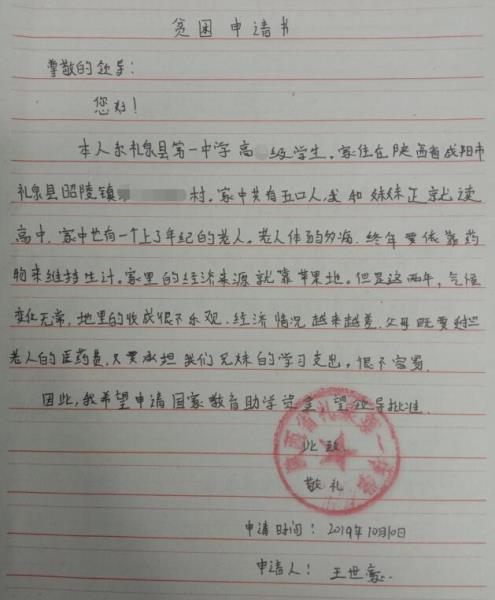 贫困申请书
尊敬的领导：
您好！
本人系礼泉县第一中学高 级学生。家住在陕西省咸阳市
礼泉县昭陵镇 村。家中共有五口人，我和妹妹正就读
高中，家中也有一个上了年纪的老人。老人体弱多病，终年要依靠药
物来维持生计。家里的经济来源就靠苹果地。但是这两年，气候
变化无常，地里的收成很不乐观，经济情况越来越差，父母既要
老人的医药费，又要承担我们兄妹的学习支出，很不容易。
因此，我希望申请国家教育助学资金，望领导批准。
此致
敬礼
陕西省礼泉第一中学
申请时间：2019年10月10日
申请人：王世豪.